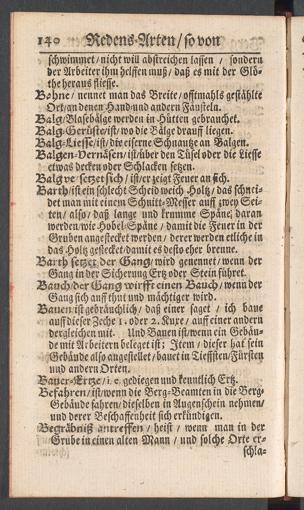 140 Redens-Arten/ so von
schwimmet/ nicht will abstreichen lassen / sondern
der Arbeiter ihm helffen muß/ daß es mit der Glö-
the heraus fliesse.
Bahne/ nennet man das Breite/ offtmahls gestählte
Ort/ an denen Hand und andern Fäusteln.
Balg/ Blasebälge werden in Hütten gebrauchet.
Balg-Gerüste/ ist/ wo die Bälge drauff liegen.
Balg-Liesse/ ist/ die eiserne Schnautze an Balgen.
Balgen-Vernäsen/ ist/ über den Tüsel oder die Liesse
etwas decken oder Schlacken setzen.
Balg versetzet sich/ ist/ er zeigt Feuer an sich.
Barth/ ist ein schlecht Scheid weich Holtz/ das schnei-
det man mit einem Schnitt-Messer auff zwey Sei-
ten/ also/ daß lange und krumme Späne/ daran
werden/ wie Hobel-Späne/ damit die Feuer in der
Gruben angestecket werden/ derer werden etliche in
das Holtz gestecket/ damit es desto eher brenne.
Barth setzet der Gang/ wird genennet/ wenn der
Gang in der Sicherung Ertz oder Stein führet.
Bauch/ der Gang wirfft einen Bauch/ wenn der
Gang sich auff thut und mächtiger wird.
Bauen ist gebräuchlich/ daß einer saget / ich baue
auff dieser Zeche 1. oder 2. Kuxe/ auff einer andern
dergleichen mit. Und Bauen ist/ wenn ein Gebäu-
de mit Arbeitern beleget ist; Item/ dieser hat sein
Gebäude also angestellet/ bauet in Tieffsten/ Fürsten
und andern Orten.
Bauer-Ertze/ i. e. gediegen und kenntlich Ertz.
Befahren/ ist/ wenn die Berg-Beamten in die Berg-
Gebäude fahren/ dieselben in Augenschein nehmen/
und derer Beschaffenheit sich erkündigen.
Begräbniß antreffen/ heist/ wenn man in der
Grube in einen alten Mann/ und solche Orte er-
schla-